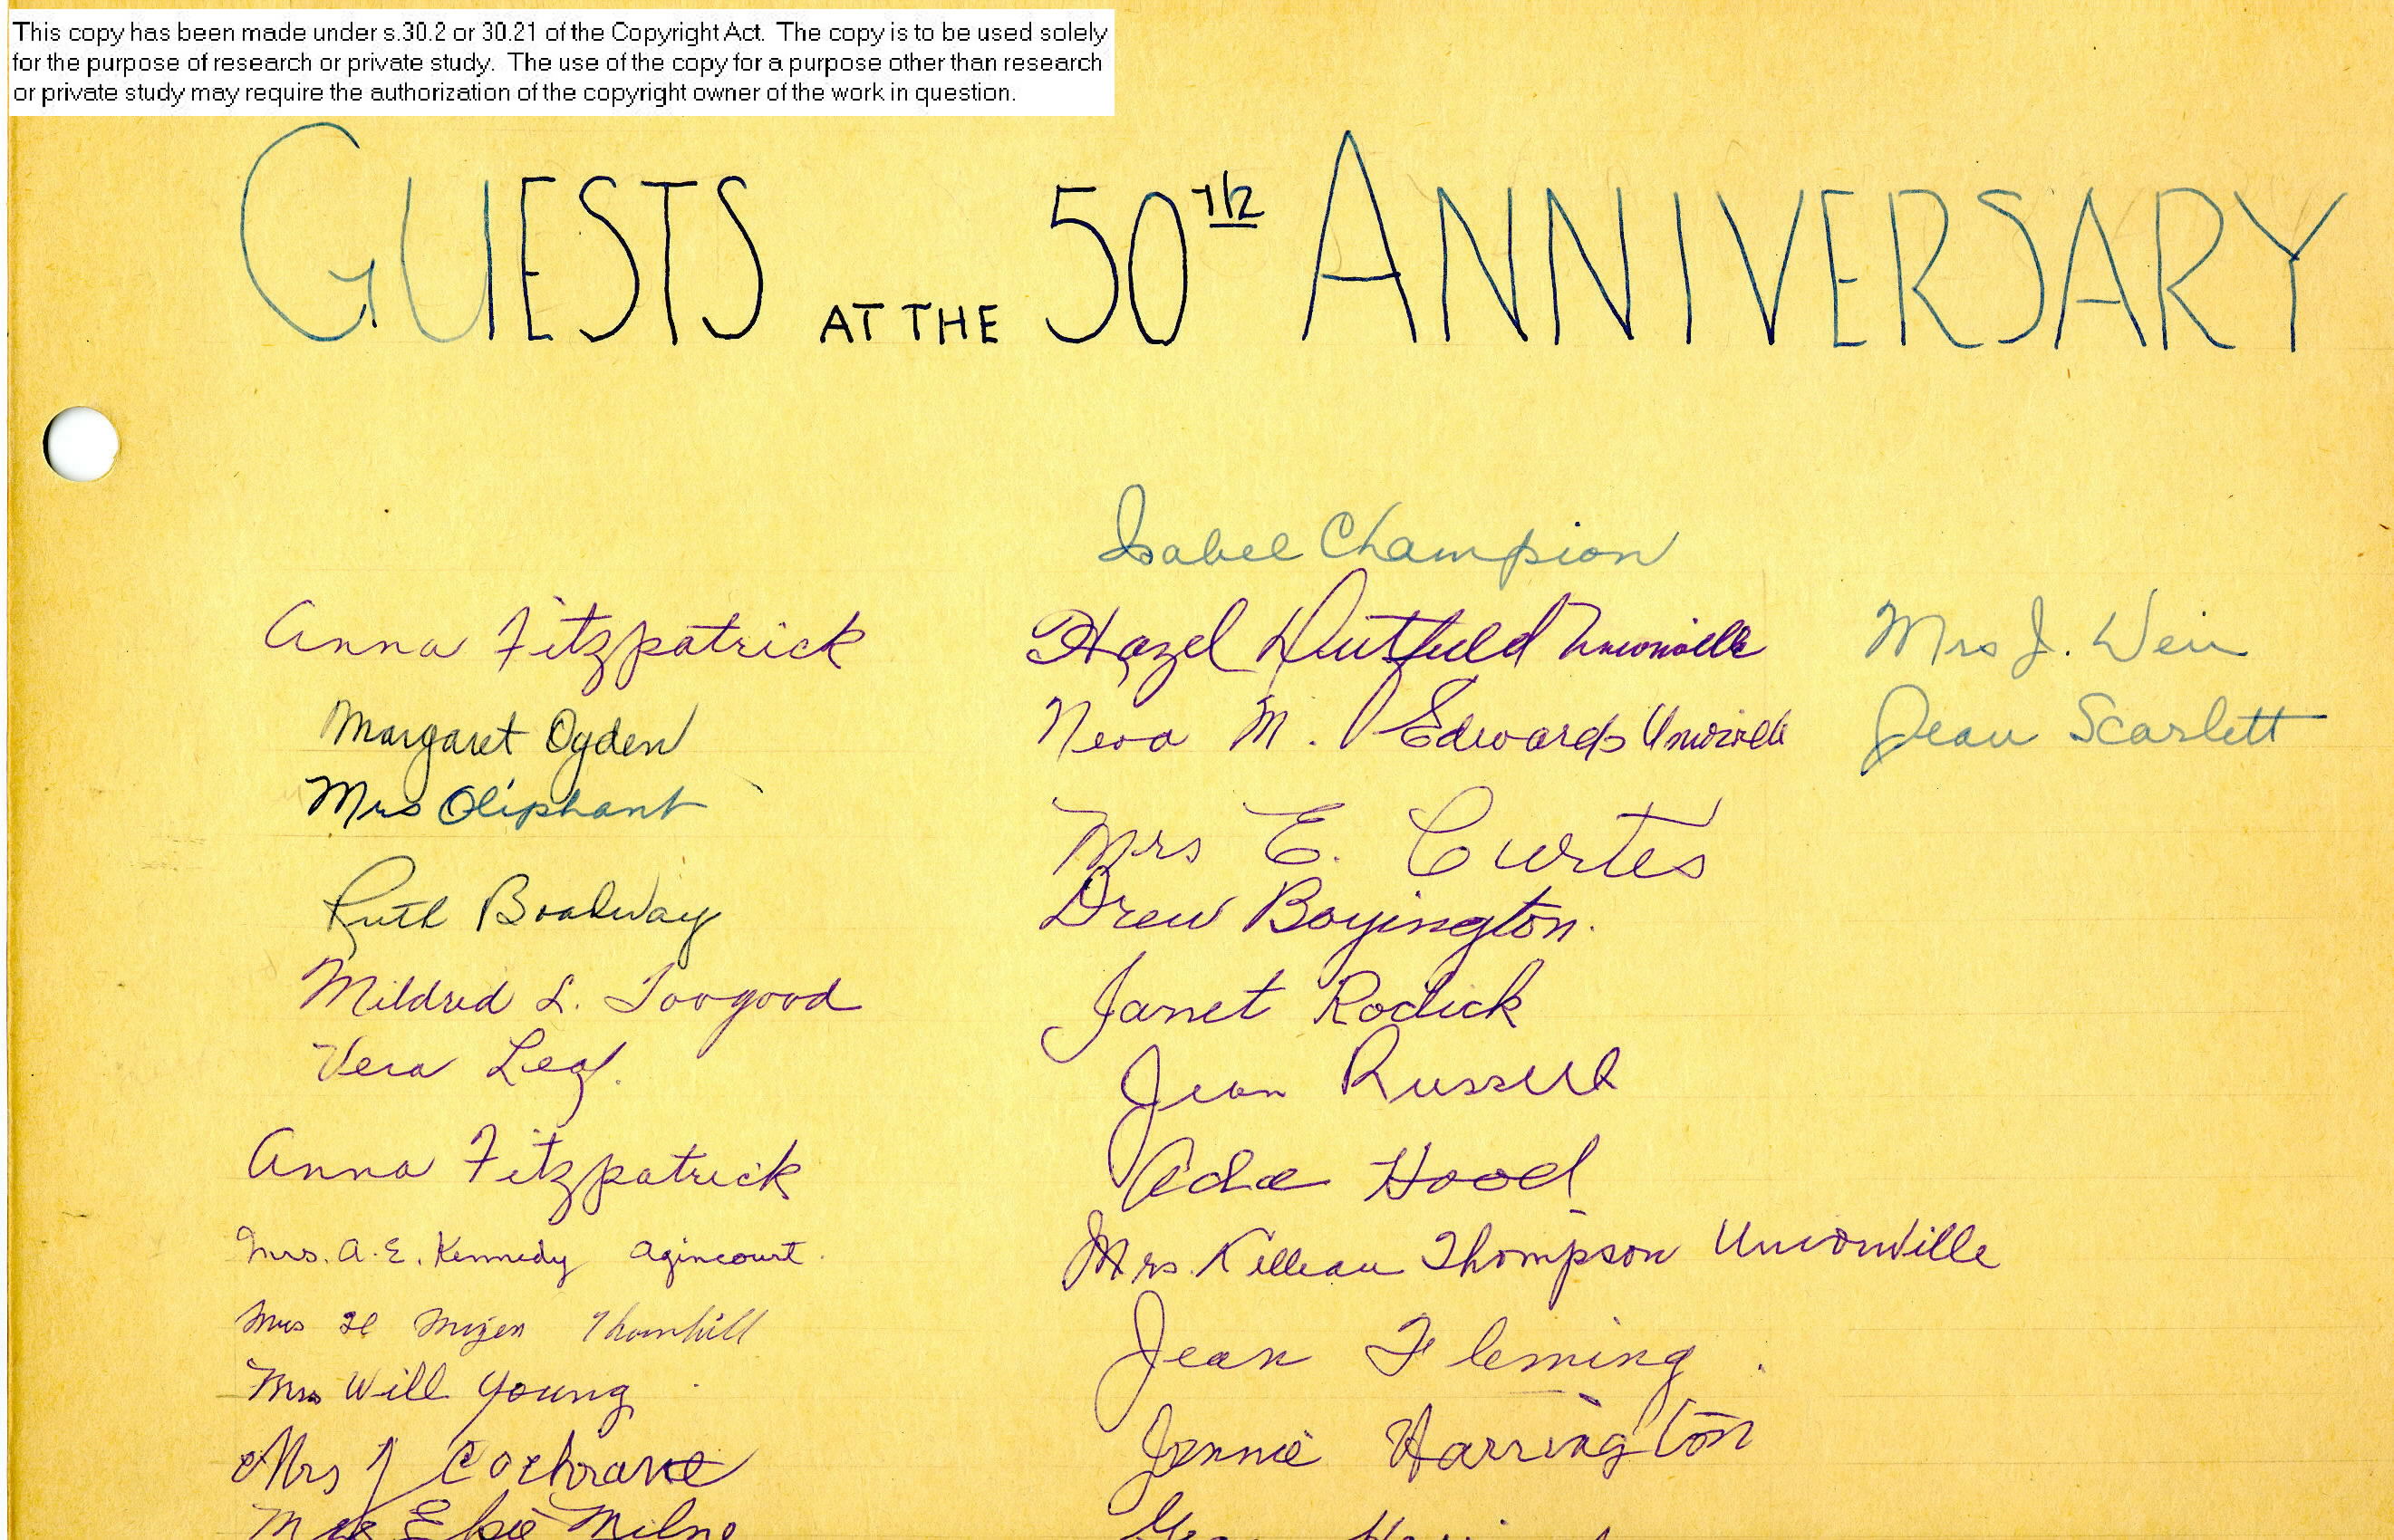 This copy has been made under s.30.2 or 30.21 of the Copyright Act. The copy is to be used solely
for the purpose of research or private study. The use of the copy for a purpose other than research
or private study may require the authorization of the copyright owner of the work in question.
GUESTS AT THE 50TH ANNIVERSARY
Anna Fitzpatrick
Margaret Ogden
Mrs Oliphant
Ruth Boadway
Mildred L. Toogood
Vera Leaf.
Anna Fitzpatrick
Mrs. A. E. Kennedy Agincourt.
Mrs H Mizen Thornhill
Mrs Will Young
Mrs J Cochrane
Mrs Elsie Milne
Isabel Champion
Hazel Unionville
Neva M. Edwards Unionville
Mrs E. Curtis
Drew Boyington.
Janet Rodick
Jean Russell
Ada Hood
Mrs. Killeau Thompson Unionville
Jean Fleming.
Jennie Harrington
Mrs J. Weir
Jean Scarlett